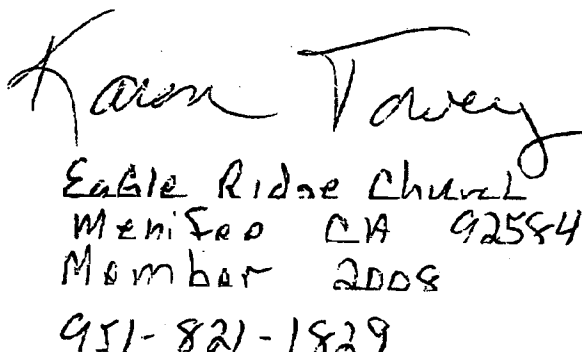 Karen Tovey
Eagle Ridge Church
Menifee CA 92584
Member 2008
951-821-1829